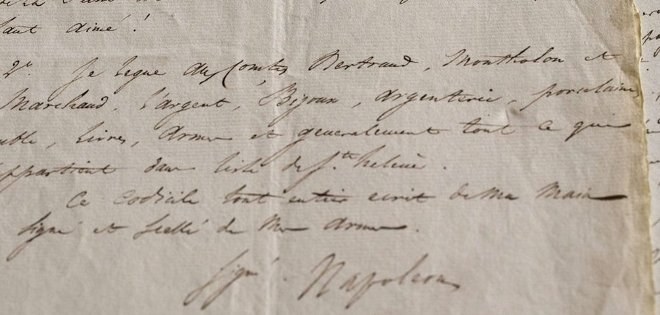 tant aimé!
2º. Je lègue aux Comtes Bertrand, Montholon et
Marchand, l'argent, Bijoux, argenterie, porcelaine,
livres, armes et généralement tout ce qui
appartient dans l'isle de Ste helene.
Ce codicile tout entier ecrit de ma main
signé et scellé de mes armes.
signé. Napoleon